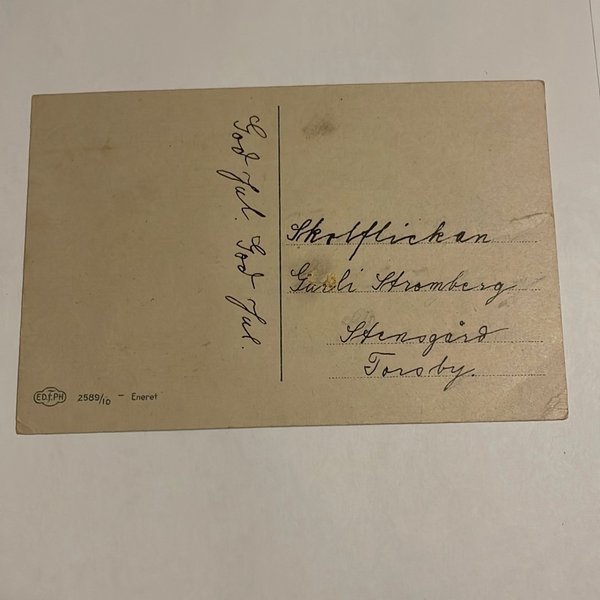 God Jul. God Jul.
Skolflickan
Gurli Stromberg
Stensgård
Torsby.
ED.F.PH 2589/10 - Eneret